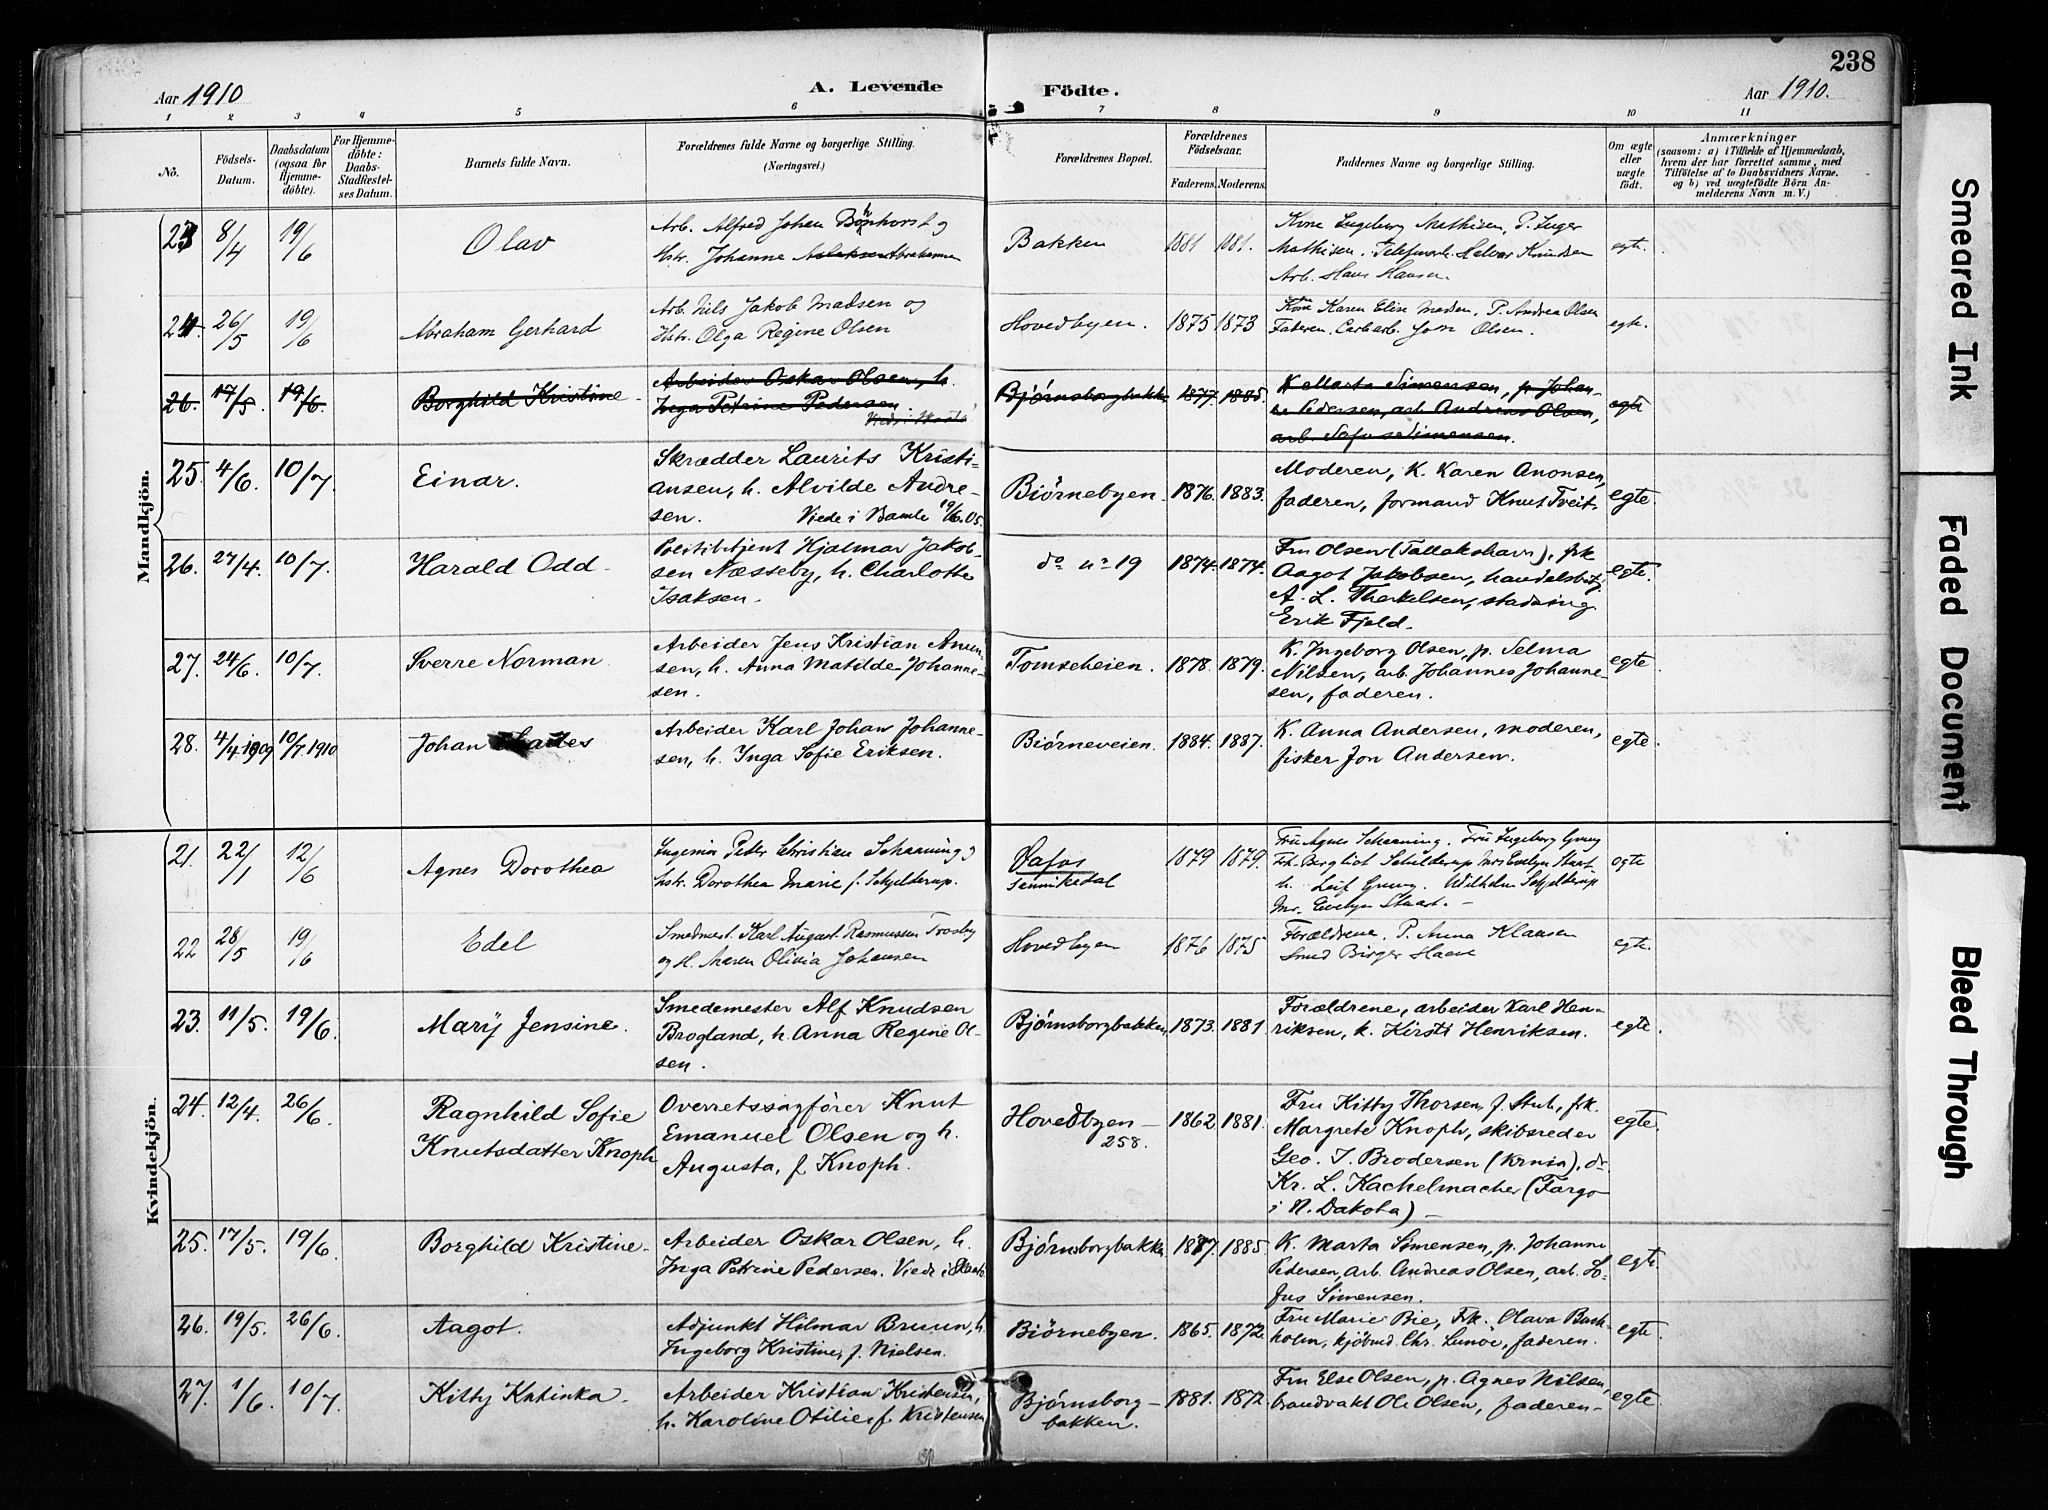 238
Aar 1910
A. Levende
Födte.
Aar 1910.
1 2 3 4 5 6 7 8 9 10 11
No.
Födsels-
Datum.
Daabsdatum
(ogsaa for
Hjemme-
döbte).
For Hjemme-
döbte:
Daabs-
Stadfæstel-
ses Datum.
Barnets fulde Navn.
Forældrenes fulde Navne og borgerlige Stilling.
(Næringsvei.)
Forældrenes Bopæl.
Forældrenes
Födselsaar.
Faderens. Moderens.
Faddernes Navne og borgerlige Stilling.
Om ægte
eller
uægte
födt.
Anmærkninger
(saasom: a) i Tilfælde af Hjemmedaab,
hvem der har forrettet samme, med
Tilföielse af to Daabsvidners Navne,
og b) ved uægtefödte Börn An-
melderens Navn m. V.)
Mandkjön.
23 8/4 19/6 Olav
Arb. Alfred Johan Bönhorst og
Hstr. Johanne Abrahamsen
Bakken 1881 1881.
Kone Ingeborg Mathisen, P. Inger
Mathisen, Telefonarb. Halvor Knudsen
Arb. Hans Hansen
egte.
24. 26/5 19/6 Abraham Gerhard
Arb. Nils Jakob Madsen og
Hstr. Olga Regine Olsen
Hovedbyen. 1875 1873
Kone Karen Elise Madsen. P. Andrea Olsen
Faderen. Olsen.
egte.
26. 17/5. 19/6. Borghild Kristine
Arbeider Oskar Olsen, h.
Inga Petrine Pedersen
Bjørnsborgbakk. 1877. 1885.
K Marta Simensen, p. Johan-
ne Pedersen, arb. Andreas Olsen,
arb. Simensen.
egte
25. 4/6. 10/7. Einar.
Skrædder Laurits Kristi-
ansen, h. Alvilde Andre-
sen. Viede i Bamle 19/6.05.
Biørnebyen. 1876. 1883.
Moderen, K. Karen Anonsen,
faderen, formand Knut Tveit.
egte.
26. 27/4. 10/7. Harald Odd.
Politibetjent Hjalmar Jakob-
sen Næsseby, h. Charlotte
Isaksen.
do nr 19 1874. 1874.
Fru Olsen (Tallakshavn), frk
Aagot Jakobsen, handelsbetj.
A. L. Therkelsen, stadsing
Erik Fjeld.
egte.
27. 24/6. 10/7. Sverre Norman.
Arbeider Jens Kristian Amun-
sen, h. Anna Matilde Johanne-
sen.
Tomseheien. 1878. 1879.
K. Ingeborg Olsen, p. Selma
Nilsen, arb. Johannes Johanne-
sen, faderen.
egte
28. 4/4.1909 10/7.1910 Johan
Arbeider Karl Johan Johanne-
sen, h. Inga Sofie Eriksen.
Biørneveien. 1884. 1887.
K. Anna Andersen, moderen,
fisker Jon Andersen.
egte.
Kvindekjön.
21. 22/1 12/6 Agnes Dorothea
Ingeniør Peter Christian Schanning og
hstr. Dorothea Marie f. Schjelderup.
Vafos
Sannikedal
1879 1879.
Fru Agnes Schanning. Fru Ingeborg Gruvg
Frk. Bergliot Schilderup Mrs Evelyn Stuart
h. Leif Gruvg. Wilhelm Schjelderup
Mr. Evelyn Stuart. –
egte
22 28/5 19/6 Edel
Smedmest. Karl August Rasmussen Trosby
og H. Maren Olivia Johansen
Hovedbyen 1876 1875
Forældrene. P. Anna Klausen
Smed Birger Haave
egte.
23. 11/5. 19/6. Mary Jensine.
Smedemester Alf Knudsen
Brogland, h. Anna Regine Ol-
sen.
Bjørnsborgbakken. 1873. 1881.
Forældrene, arbeider Karl Hen-
riksen, k. Kirsti Henriksen.
egte.
24. 12/4. 26/6. Ragnhild Sofie
Knutsdatter Knoph
Overretssagfører Knut
Emanuel Olsen og h.
Augusta, f Knoph.
Hovedbyen –
258.
1862 1881.
Fru Kitty Thorsen, f. Stub, frk.
Margrete Knoph, skibsreder
Geo. I. Brodersen (Krnia), dr
Kr. L. Kachelmacher (Fargo
i N. Dakota) –
egte.
25. 17/5. 19/6. Borghild Kristine.
Arbeider Oskar Olsen, h.
Inga Petrine Pedersen. Viede i Skaatø
Bjørnsborgbakk. 1887. 1885.
K. Marta Simensen, p. Johanne
Pedersen, arb. Andreas Olsen, arb. So-
fus Simensen.
egte.
26. 19/5. 26/6. Aagot.
Adjunkt Hilmar Bruun, h.
Ingeborg Kristine, f. Nielsen.
Biørnebyen. 1865. 1872.
Fru Marie Bie, Frk. Olava Buch-
holm, kjøbmd. Chr. Lunøe, faderen.
egte.
27. 1/6. 10/7. Kitty Katinka.
Arbeider Kristian Kristensen,
h. Karoline Otilie f. Kristensen
Bjørnsborg-
bakken.
1881. 1872.
Fru Else Olsen, p. Agnes Nilsen,
brandvakt Ole Olsen, faderen.
egte
Smeared Ink
Faded Document
Bleed Through